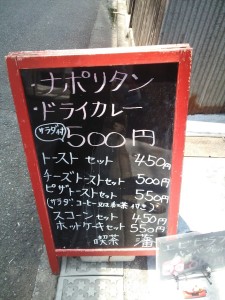 ・ナポリタン
・ドライカレー
サラダ付 500円
トースト セット 450円
チーズトーストセット 500円
ピザトーストセット 550円
(サラダ、コーヒー又は紅茶付き)
スコーンセット 450円
ホットケーキセット 550円
喫茶 藩